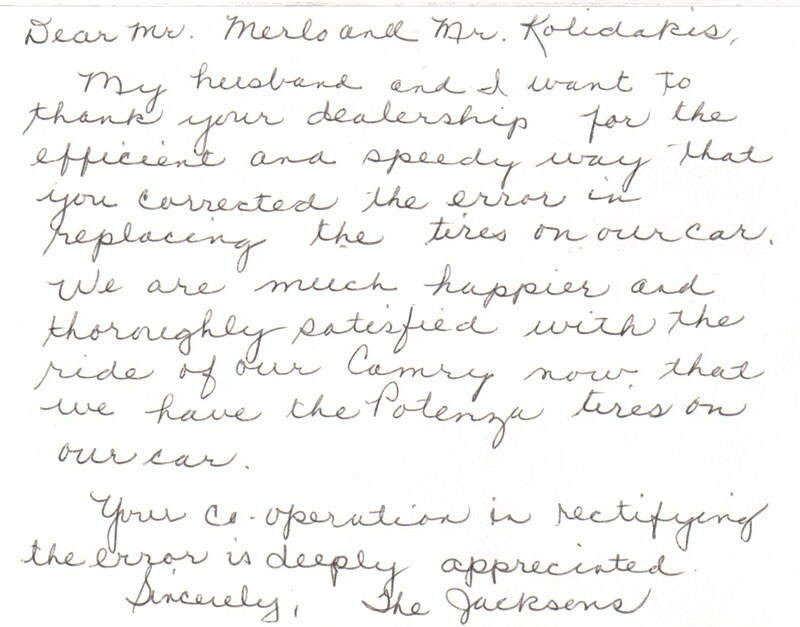 Dear Mr. Merlo and Mr. Kolidakis,
My husband and I want to
thank your dealership for the
efficient and speedy way that
you corrected the error in
replacing the tires on our car.
We are much happier and
thoroughly satisfied with the
ride of our Camry now that
we have the Potenza tires on
our car.
Your co-operation in rectifying
the error is deeply appreciated.
Sincerely, The Jacksons